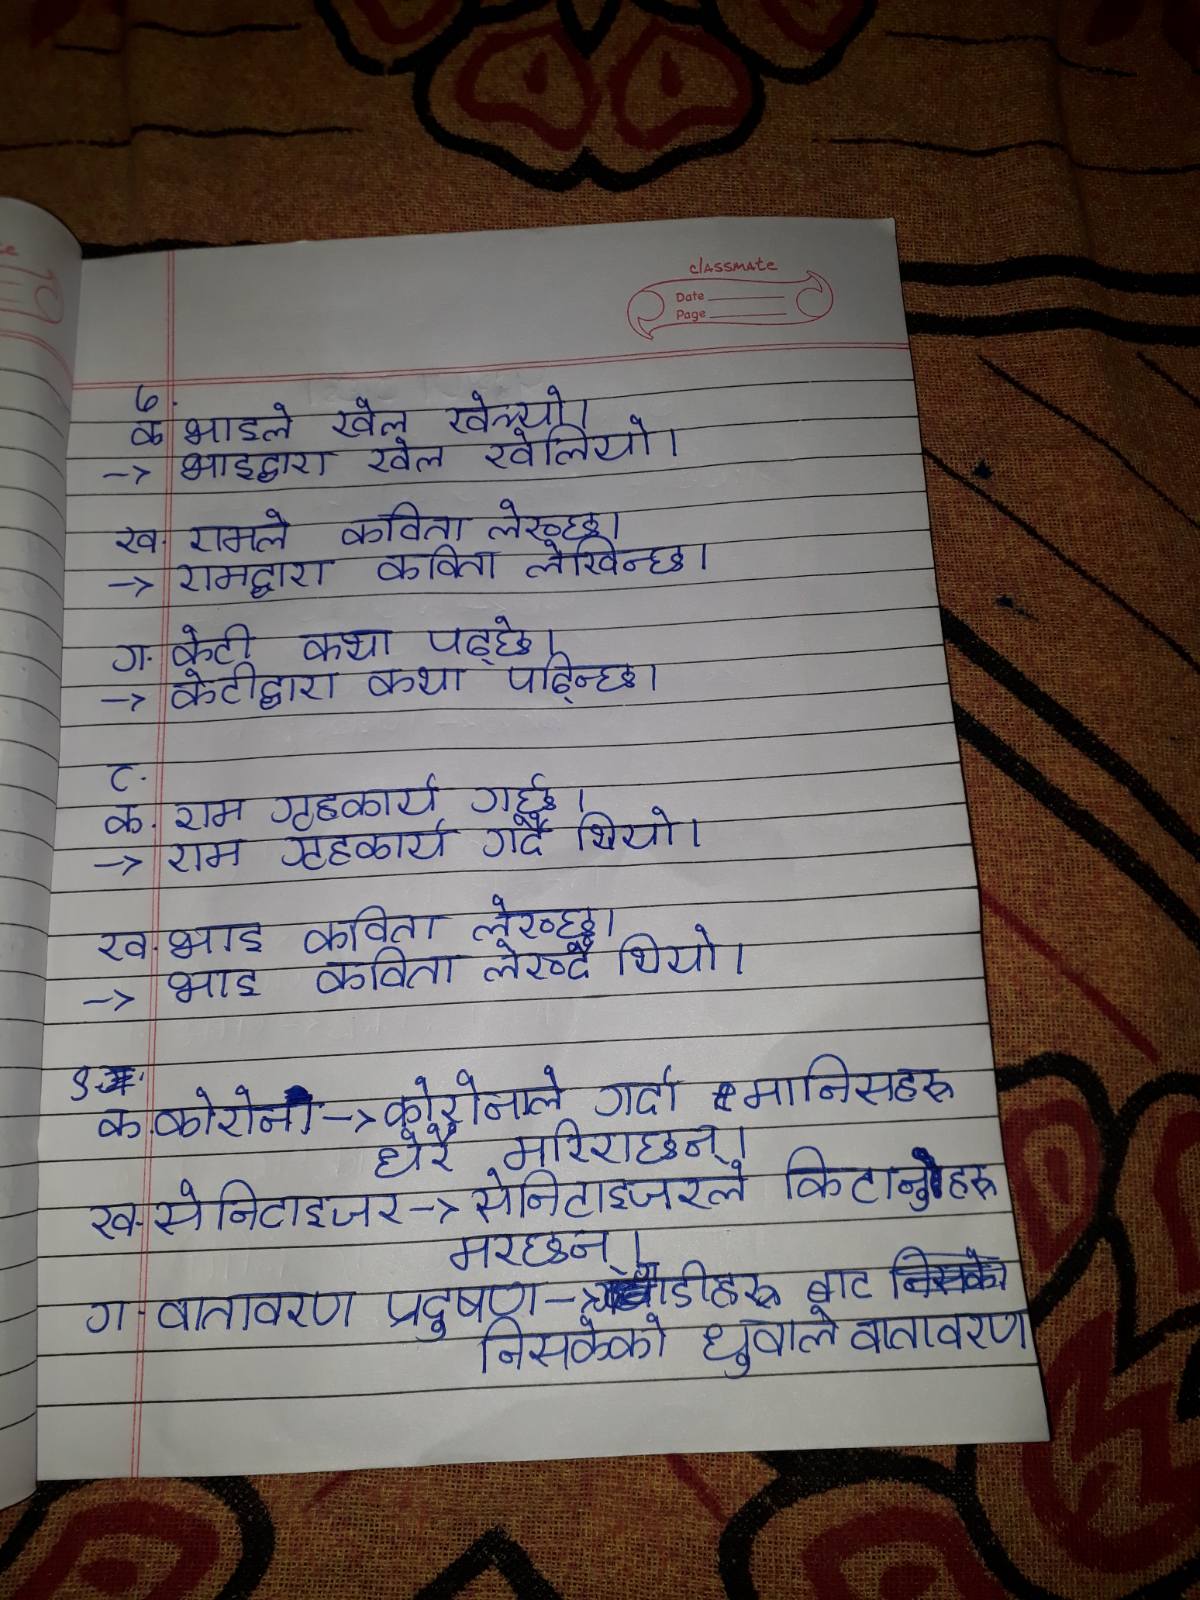 classmate
Date
Page
७.
क भाइले खेल खेल्यो।
-> भाइद्वारा खेल खेलियो।
ख. रामले कविता लेख्छ।
-> रामद्वारा कविता लेखिन्छ।
ग. केटी कथा पढ्छे।
-> केटीद्वारा कथा पढिन्छ।
८.
क. राम गृहकार्य गर्छ।
-> राम गृहकार्य गर्दै थियो।
ख. भाइ कविता लेख्छ।
-> भाइ कविता लेख्दै थियो।
९.
क. कोरोना -> कोरोनाले गर्दा मानिसहरू
धेरै मरिराछन्।
ख. सेनिटाइजर -> सेनिटाइजरले किटानुहरू
मरछन्।
ग. वातावरण प्रदुषण -> गाडीहरू बाट
निसकेको धुवाले वातावरण